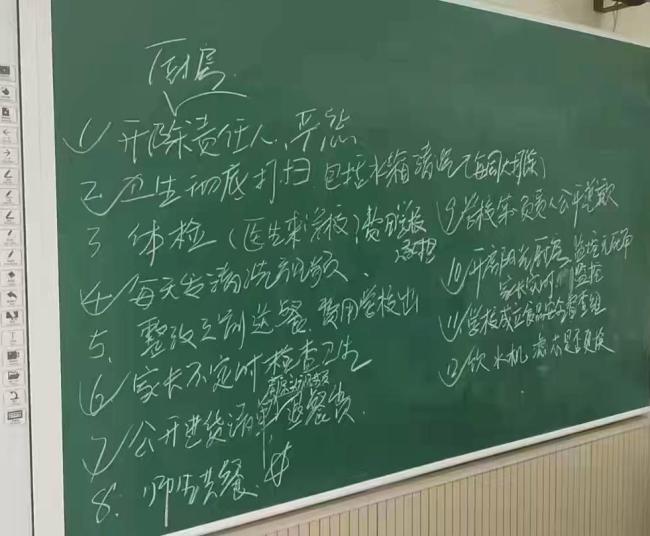 厨房
① 开除责任人、严惩
2 卫生彻底打扫 包括水箱清洗(每周大扫除)
3 体检(医生来学校)费用学校承担
4 每天发清洗视频、
5、整改之前送餐 费用学校出
⑥ 家长不定时检查卫生
7 公开进货清单 退餐费.
8、师生共餐.
9 学校第一负责人公开道歉
⑩ 开启阳光厨房 监控无死角
家长实时监控
⑪ 学校成立食品安全督查组
⑫ 饮水机滤芯是否更换